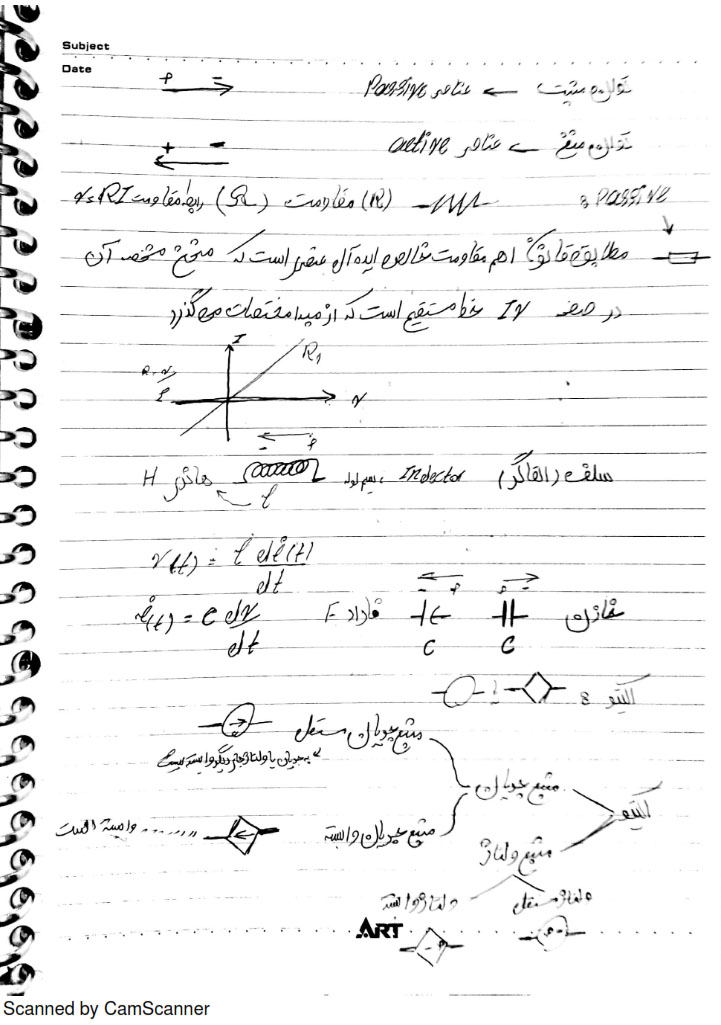 Subject
Date
توان مثبت ← عناصر Passive + -
توان منفی ← عناصر active + -
Passive : مقاومت (R) (Ω) رابطه مقاومت v=RI
مطابق قانون اهم مقاومت خالص ایده آل عنصری است که منحنی مشخصه آن
در صفحه IV خط مستقیم است که از مبدا مختصات می گذرد
I
R1
V
سلف (القاگر) Indector سیم لوله هانری H
+ -
v(t) = L di(t)/dt
خازن فاراد F
+ - + -
C C
i(t) = C dv/dt
اکتیو : یا
منبع جریان مستقل
به جریان یا ولتاژ جای دیگر وابسته نیست
اکتیو
منبع جریان
منبع جریان وابسته
وابسته است
منبع ولتاژ
ولتاژ مستقل
ولتاژ وابسته
ART
Scanned by CamScanner